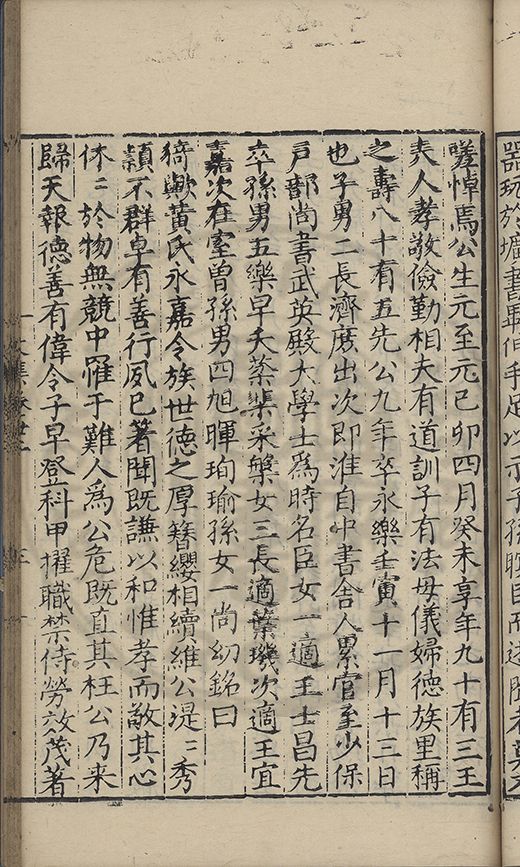 器玩於壙書
嗟悼焉公生元至元己卯四月癸未享年九十有三王
夫人孝敬儉勤相夫有道訓子有法母儀婦德族里稱
之壽八十有五先公九年卒永樂壬寅十一月十三日
也子男二長濟庶出次即淮自中書舍人累官至少保
戶部尚書武英殿大學士為時名臣女一適王士昌先
卒孫男五樂早夭蔡枼采槃女三長適葉璣次適王宜
嘉次在室曾孫男四旭暉珣瑜孫女一尚幼銘曰
猗歟黃氏永嘉令族世德之厚簪纓相續維公湜〻秀
頴不群卓有善行夙已著聞既謙以和惟孝而敬其心
休〻於物無競中罹于難人為公危既直其枉公乃来
歸天報德善有偉令子早登科甲擢職禁侍勞效茂著